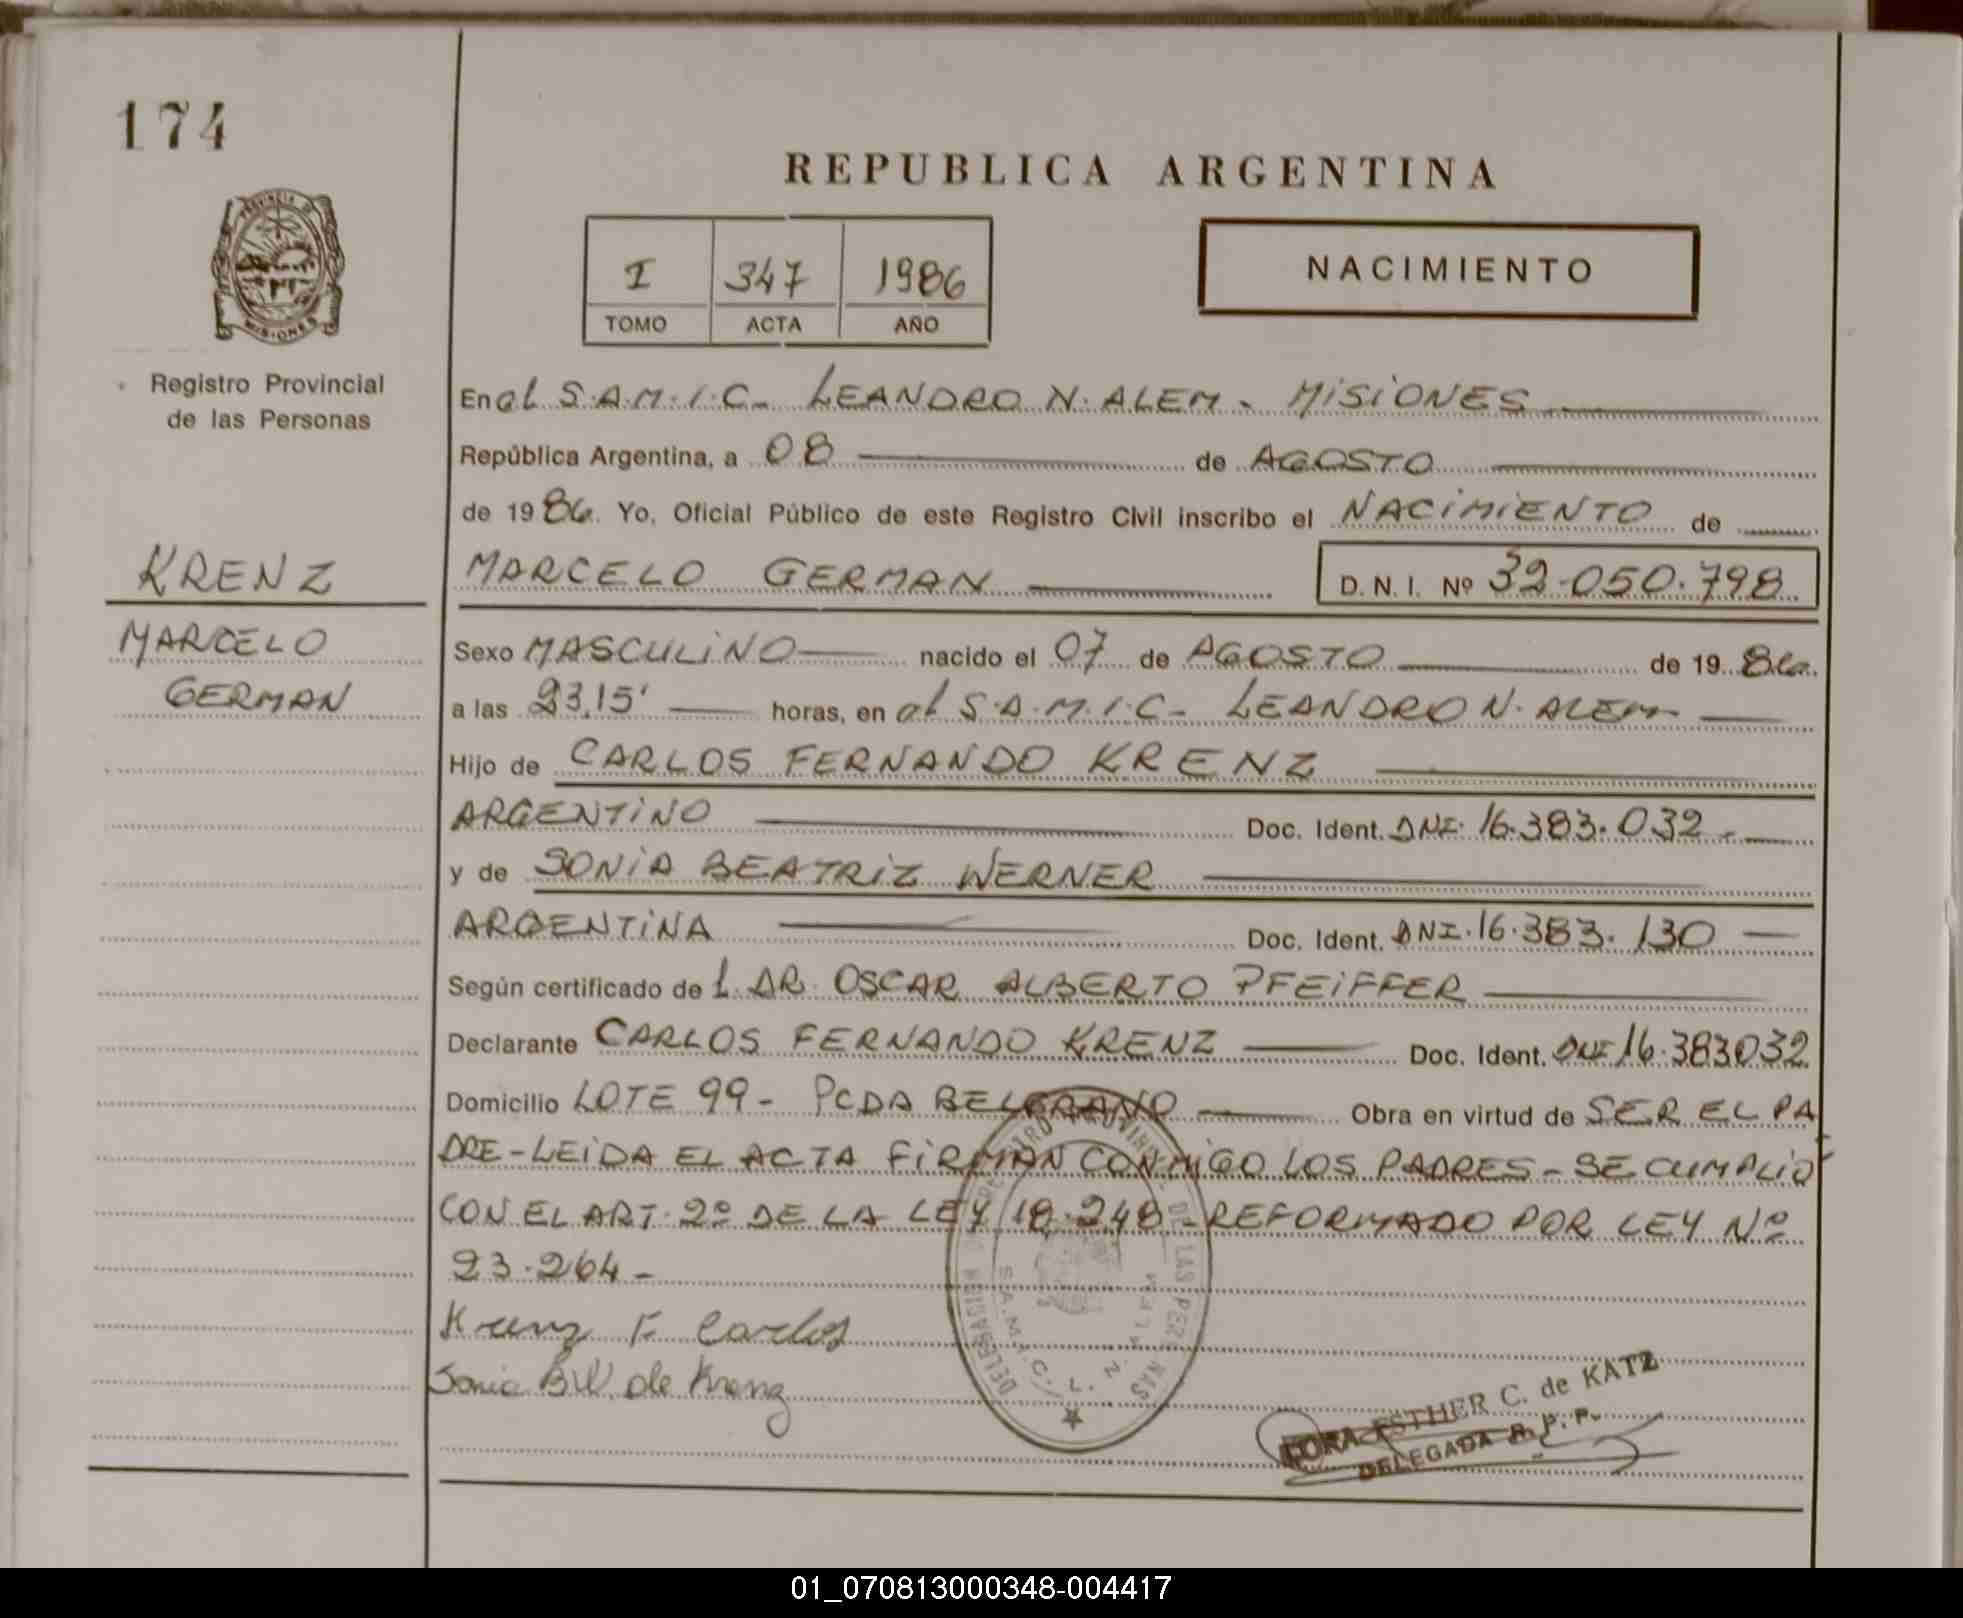 174
REPUBLICA ARGENTINA
PROVINCIA DE
MISIONES
I 347 1986
TOMO ACTA AÑO
NACIMIENTO
Registro Provincial
de las Personas
KRENZ
MARCELO
GERMAN
En el S.A.M.I.C- LEANDRO N. ALEM - MISIONES
República Argentina, a 08 de AGOSTO
de 1986. Yo, Oficial Público de este Registro Civil inscribo el NACIMIENTO de
MARCELO GERMAN D. N. I. Nº 32.050.798
Sexo MASCULINO nacido el 07 de AGOSTO de 1986.
a las 23,15' horas, en el S.A.M.I.C- LEANDRO N. ALEM
Hijo de CARLOS FERNANDO KRENZ
ARGENTINO Doc. Ident. DNI. 16.383.032.-
y de SONIA BEATRIZ WERNER
ARGENTINA Doc. Ident. DNI. 16.383.130
Según certificado del DR. OSCAR ALBERTO PFEIFFER
Declarante CARLOS FERNANDO KRENZ Doc. Ident. DNI 16.383032
Domicilio LOTE 99- PCDA BELGRANO Obra en virtud de SER EL PA
DRE-LEIDA EL ACTA FIRMAN CONMIGO LOS PADRES-SE CUMPLIO
CON EL ART. 2º DE LA LEY 18.248-REFORMADO POR LEY Nº
23.264-
Krenz F. Carlos
Sonia B.W. de Krenz
S.A.M.I.C. L. N. ALEM
ESTHER C. de KATZ
DELEGADA R. P. P.
01_070813000348-004417